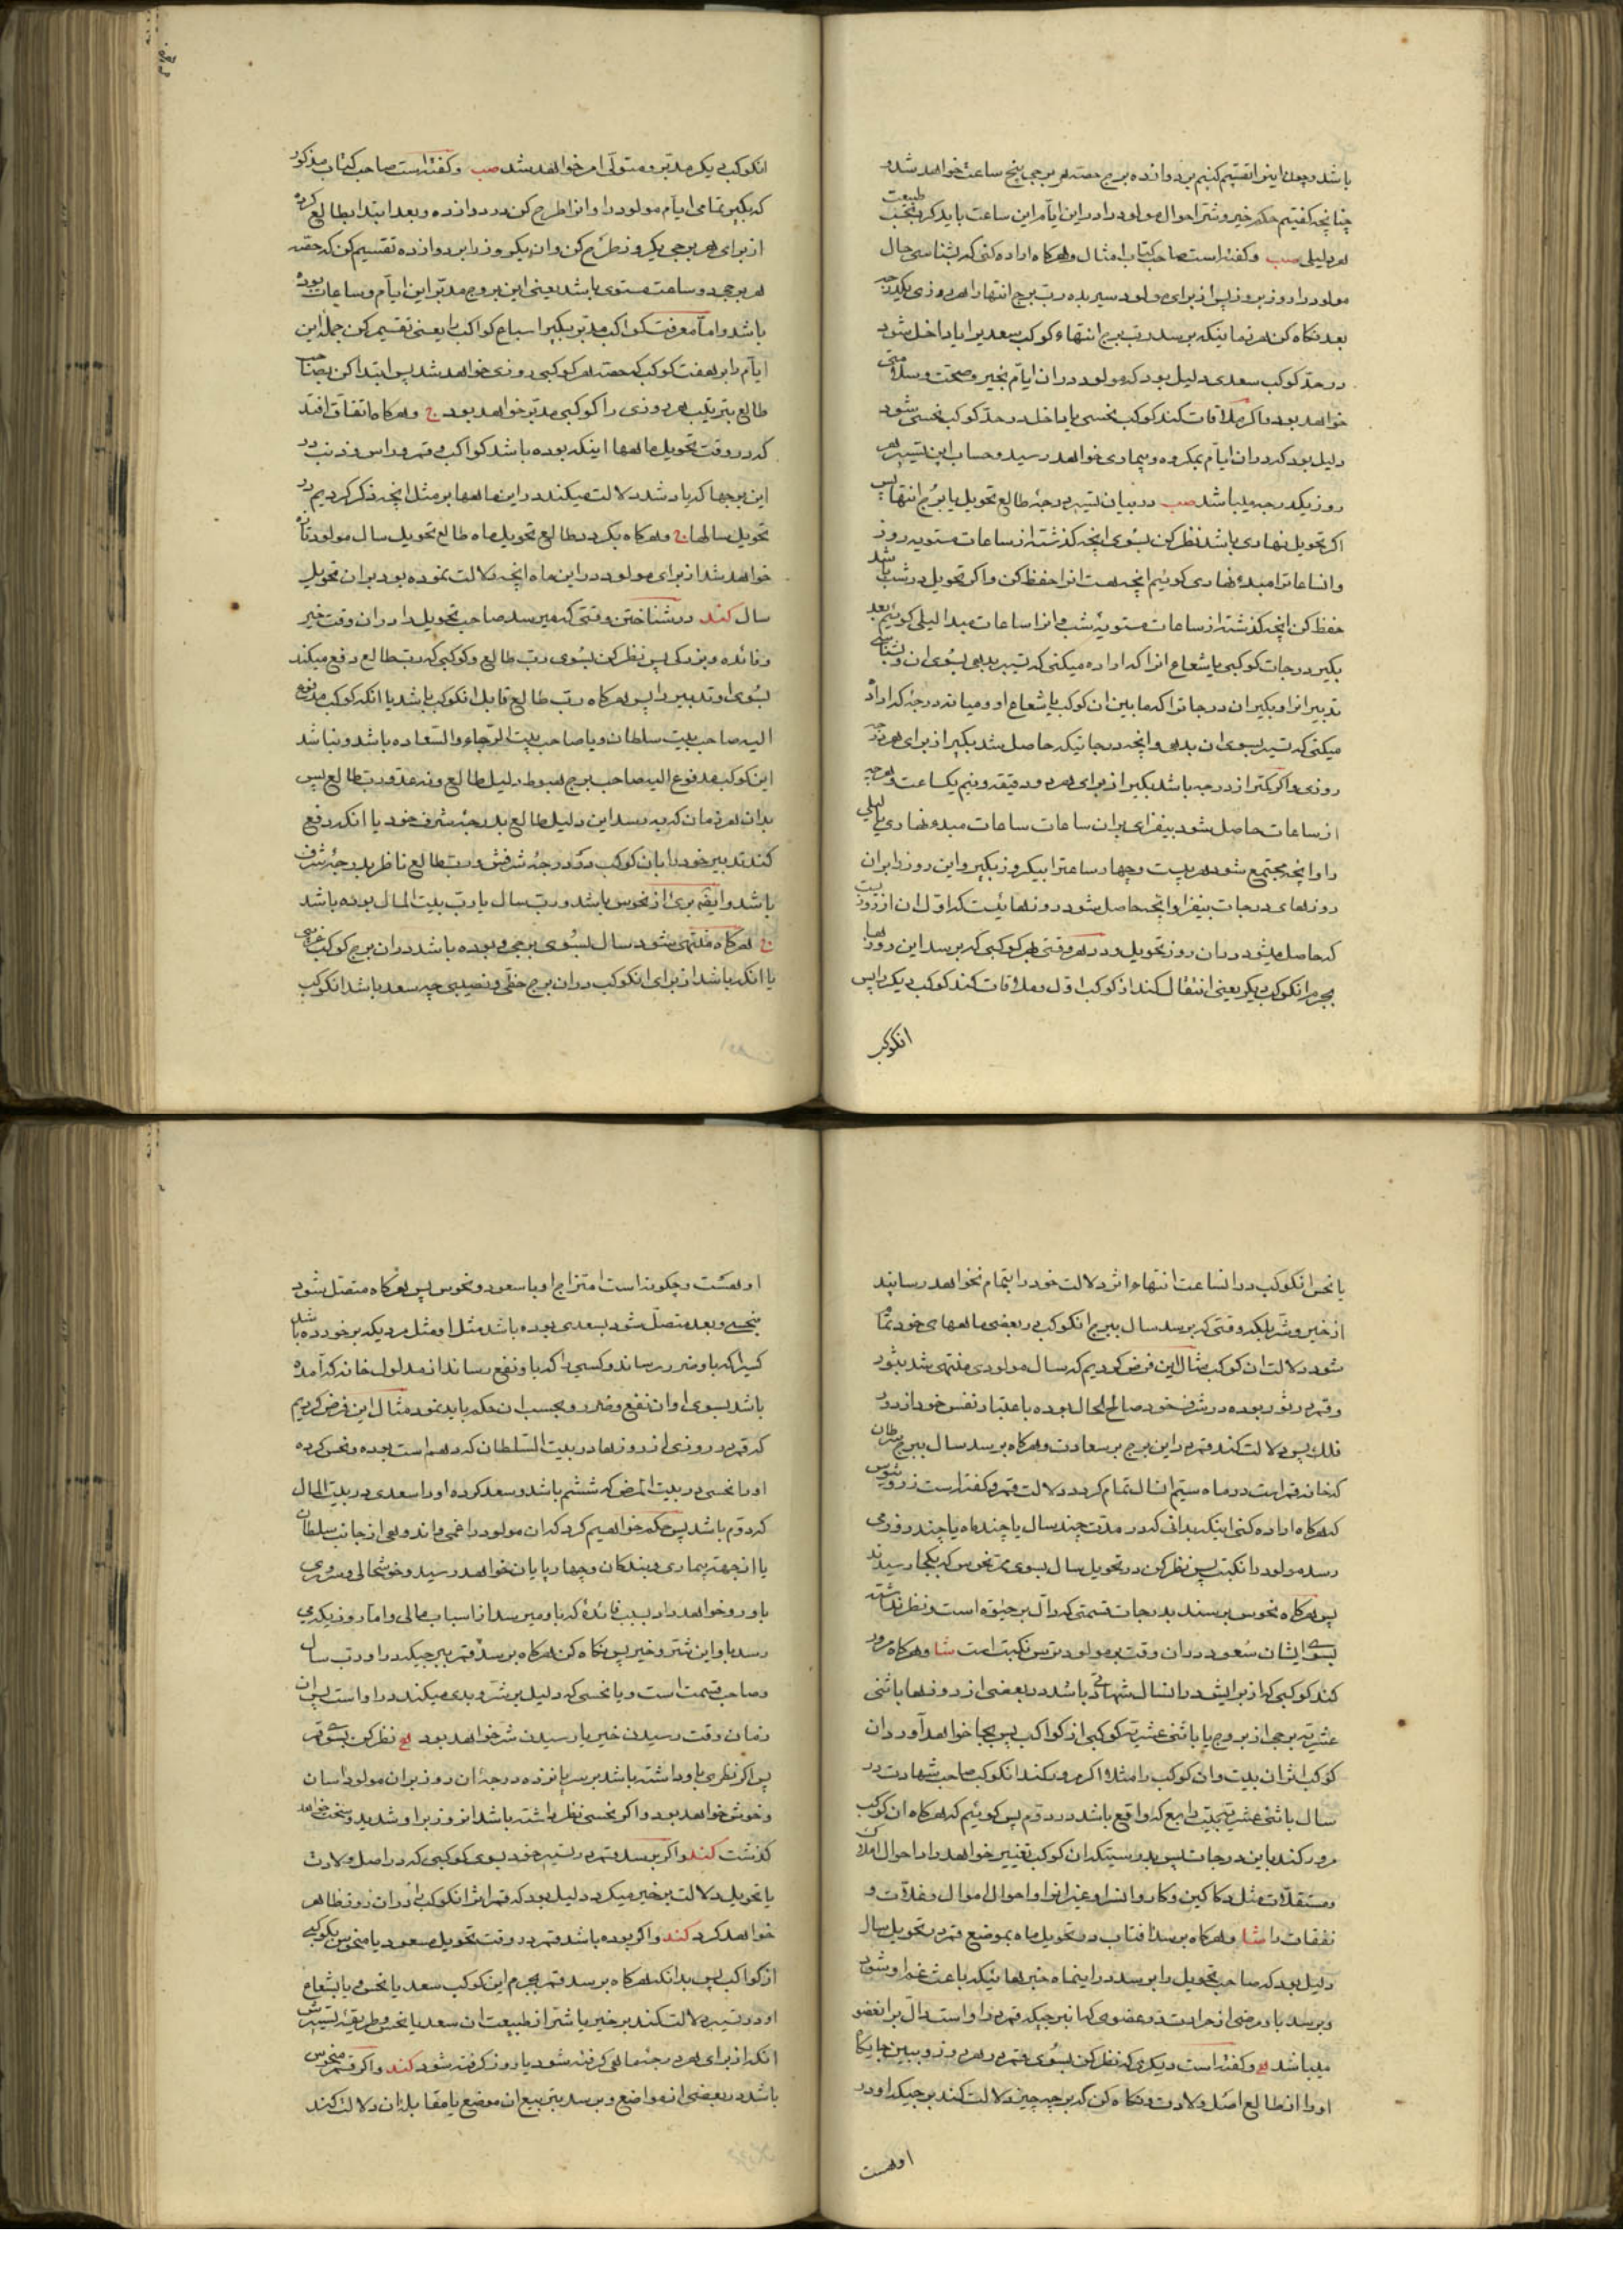 باشد و چون اینرا تقسیم کنیم بر دوازده برج حصّه هر برجی پنج ساعت خواهد شد و
چنانچه کفتیم حکم خیر و شرّ احوال مولود را در این ایّام این ساعت باید کرد بحسب طبیعت
هر دلیلی صب و کفته است صاحب کتاب امثال و هرکاه اراده کنی که بشناسی حال
مولود را روز بروز پس از برای مولود سیر بده ربّ برج انتها را هر روزی یکدرجه
بعد نکاه کن هر زمانیکه برسد ربّ برج انتهاء کوکب سعدیرا یا داخل شود
در حدّ کوکب سعدی دلیل بود که مولود در ان ایّام بخیر و صحّت و سلامتی
خواهد بود و اکر ملاقات کند کوکب نحسی یا داخل در حدّ کوکب نحسی شود
دلیل بود که در ان ایّام بمکروه و بیماری خواهد رسید و حساب این تسییر هر
روز یکدرجه میباشد صب در بیان تسییر درجهٔ طالع تحویل یا برج انتها پس
اکر تحویل نهاری باشد نظر کن بسوی انچه کذشته از ساعات مستویه روز
و انساعاترا مبدء نهاری کوئیم انچه هست انرا حفظ کن و اکر تحویل در شب باشد
حفظ کن انچه کذشته از ساعات مستویهٔ شب و انرا ساعات مبدا لیلی کوئیم بعد
بکیر درجات کوکبی یا شعاع انرا که اراده میکنی که تسییر بدهی بسوی ان و بشناسی
تدبیر انرا و بکیر ان درجاتیرا که مابین ان کوکب یا شعاع او و میانه درجهٔ که اراده
میکنی که تسییر بسوی ان بدهی و انچه درجاتیکه حاصل شد بکیر از برای هر درجه
روزی و اکر کمتر از درجه باشد بکیر از برای هر دو دقیقه و نیم یکساعت و هرچه
از ساعات حاصل شود بیفزای بر ان ساعات ساعات مبدء نهاری یا لیلی
را و انچه مجتمع شود هر بیست و چهار ساعترا بیکروز بکیر و این روز را بران
روزهای درجات بیفزا و انچه حاصل شود روزهائیست که اوّل ان از روزیست
که حاصل میشود در ان روز تحویل و در هر وقتی هر کوکبی که برسد این روزها
بجرم انکوکب دیکر یعنی انتقال کند از کوکب اوّل و ملاقات کند کوکب دیکر را پس
انکوکب
انکوکب دیکر مدبّر و متولّی امر خواهد شد صب و کفته است صاحب کتاب مذکور
که بکیر تمامی ایّام مولود را و انرا طرح کن در دوازده و بعد ابتدا بطالع کرده
از برای هر برجی یکروز طرح کن و ان یکروز را بر دوازده تقسیم کن که حصّه
هر برجی دو ساعت مستوی باشد یعنی این بروج مدبّر این ایّام و ساعات بوده
باشد و امّا معرفت کواکب مدبّر بکیر اسباع کواکب را یعنی تقسیم کن جملهٔ این
ایّام را بر هفت کوکب که حصّه هر کوکبی روزی خواهد شد پس ابتدا کن بصاحب
طالع بترتیب هر روزی را کوکبی مدبّر خواهد بود ج و هرکاه اتفاق افتد
که در وقت تحویل ماهها اینکه بوده باشد کواکب و قمر و راس و ذنب در
این برجها که یاد شد دلالت میکند در این ماهها بر مثل انچه ذکر کردیم در
تحویل سالها ج و هرکاه بکردد طالع تحویل ماه طالع تحویل سال مولود تازه
خواهد شد از برای مولود در این ماه انچه دلالت نموده بود بر ان تحویل
سال کند در شناختن وقتی که میرسد صاحب تحویل را در ان وقت خیر
و فائده و بزرکی پس نظر کن بسوی ربّ طالع و کوکبی که ربّ طالع دفع میکند
بسوی او تدبیر را پس هرکاه ربّ طالع قابل انکوکب باشد یا انکه کوکب مدفوع
الیه صاحب بیت سلطان و یا صاحب بیت الرّجاء و السّعاده باشد و نباشد
این کوکب مدفوع الیه صاحب برج هبوط دلیل طالع و نه عدّو ربّ طالع پس
بدان هر زمان که برسد این دلیل طالع بدرجهٔ شرف خود یا انکه دفع
کند تدبیر خود را بان کوکب در درجهٔ شرفش و ربّ طالع ناظر بدرجهٔ شرف
باشد و ایضه بری از نحوس باشد و ربّ سال یا ربّ بیت المال بوده باشد
ج هرکاه منتهی شود سال بسوی برجی و بوده باشد در ان برج کوکب غریبی
یا انکه باشد از برای انکوکب در ان برج حظّی و نصیبی چه سعد باشد انکوکب
یا نحس انکوکب در انساعت انتهاء اثر دلالت خود را بتمام نخواهد رسانید
از خیر و شرّ بلکه وقتی که برسد سال ببرج انکوکب در بعضی ماههای خود تمام
شود دلالت ان کوکب مثال این فرض کردیم که سال مولودی منتهی شد بثور
و قمر در ثور بوده در شرف خود صالح الحال بوده باعتبار نفس خود از دور
فلک پس دلالت کند قمر در این برج بر سعادت و هرکاه برسد سال ببرج سرطان
که خانه قمر است در ماه سیّم انسال تمام کردد دلالت قمر و کفته است زرویوس
که هرکاه اراده کنی اینکه بدانی که در مدّت چند سال یا چند ماه یا چند روز می
رسد مولود را نکبت پس نظر کن در تحویل سال بسوی ممرّ نحوس که بکجا رسیدند
پس هرکاه نحوس برسند بدرجات قسمتی که دالّ بر حیوة است و نظر نداشته
بسوی ایشان سعود در ان وقت بر مولود ترس نکبت است شا و هرکاه مرور
کند کوکبی که از برایش در انسال شهادتی باشد در بعضی از روزها باثنی
عشریّه برجی از بروج یا باثنی عشریّه کوکبی از کواکب پس بجا خواهد آورد ان
کوکب اثر ان بیت و ان کوکب را مثلا اکر مرور کند انکوکب صاحب شهادت در
سال باثنی عشریّه بیت رابع که واقع باشد در دوّم پس کوئیم که هرکاه ان کوکب
مرور کند باین درجات پس بدرستیکه ان کوکب تغییر خواهد داد احوال املاک
و مستقلّات مثل دکاکین و کاروانسرا و غیر انرا و احوال اموال و غلّات و
نفقات را شا و هرکاه برسد افتاب در تحویل ماه بموضع قمر در تحویل سال
دلیل بود که صاحب تحویل را برسد در اینماه خبرهائیکه باعث غم او شود
و برسد باو مرضی از حرارت در عضوی که انبرجیکه قمر در او است دالّ بر انعضو
میباشد لع و کفته است دیکری که نظر کن بسوی قمر در هر روز و ببین جایکاه
او را از طالع اصل ولادت و نکاه کن که بر چه چیز دلالت کند برجیکه او در
اوهست
او هست و چکونه است امتزاج او با سعود و نحوس پس هرکاه متصل شود
بنحسی و بعد متصل شود بسعدی بوده باشد مثل او مثل مردیکه برخورده باشد
کسیرا که باو ضرر رساند و کسی را که باو نفع رساند از مدلول خانه که آمده
باشد بسوی او ان نفع و ضرر و بحسب ان حکم باید نمود مثال این فرض کردیم
که قمر در روزی از روزها در بیت السّلطان که دهم است بوده و نحس کرده
او را نحسی در بیت المرض که ششم باشد و سعد کرده او را سعدی در بیت المال
که دوّم باشد پس حکم خواهیم کرد که ان مولود را غمی و اندوهی از جانب سلطان
یا از جهة بیماری و بندکان و چهارپایان خواهد رسید و خوشحالی و سروری
باو رو خواهد داد بسبب فائدهٔ که باو میرسد از اسباب مالی و امّا روزیکه می
رسد باو این شرّ و خیر پس نکاه کن هرکاه برسد قمر ببرجیکه در او ربّ سال
و صاحب قسمت است و یا نحسی که دلیل بر شرّ و بدی میکند در او است پس ان
زمان وقت رسیدن خیر یا رسیدن شر خواهد بود لع نظر کن بسوی قمر
پس اکر نظری باو داشته باشد بر سر پانزده درجه ان روز بران مولود اسان
و خوش خواهد بود و اکر نحسی نظر داشته باشد انروز بر او شدید و سخت خواهد
کذشت کند و اکر برسد قمر در تسییر خود بسوی کوکبی که در اصل ولادت
یا تحویل دلالت بر خیر میکرد دلیل بود که قمر اثر انکوکب را در ان روز ظاهر
خواهد کرد کند و اکر بوده باشد قمر در وقت تحویل مسعود یا منحوس بکوکبی
از کواکب پس بدانکه هرکاه برسد قمر بجرم این کوکب سعد یا نحس و یا بشعاع
او در تسییر دلالت کند بر خیر یا شرّ از طبیعت ان سعد یا نحس و طریقهٔ تسییرش
انکه از برای هر درجه ماهی کرفته شود یا روز کرفته شود کند و اکر قمر منحوس
باشد در بعضی از مواضع و برسد بتربیع ان موضع یا مقابلهٔ ان دلالت کند